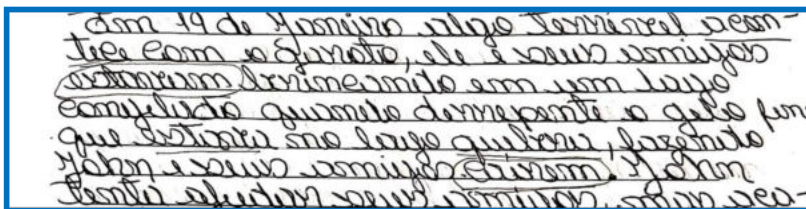 Em 19 de Janeiro algo terrível acon-
tece com o garoto, ele e seus amigos
estavam brincando em um lago
congelado quando derrepente o gelo fino
que estava no lago quebrou, fazendo
John e seus amigos cairem. John
tenta ajudar seus amigos, mas aca-